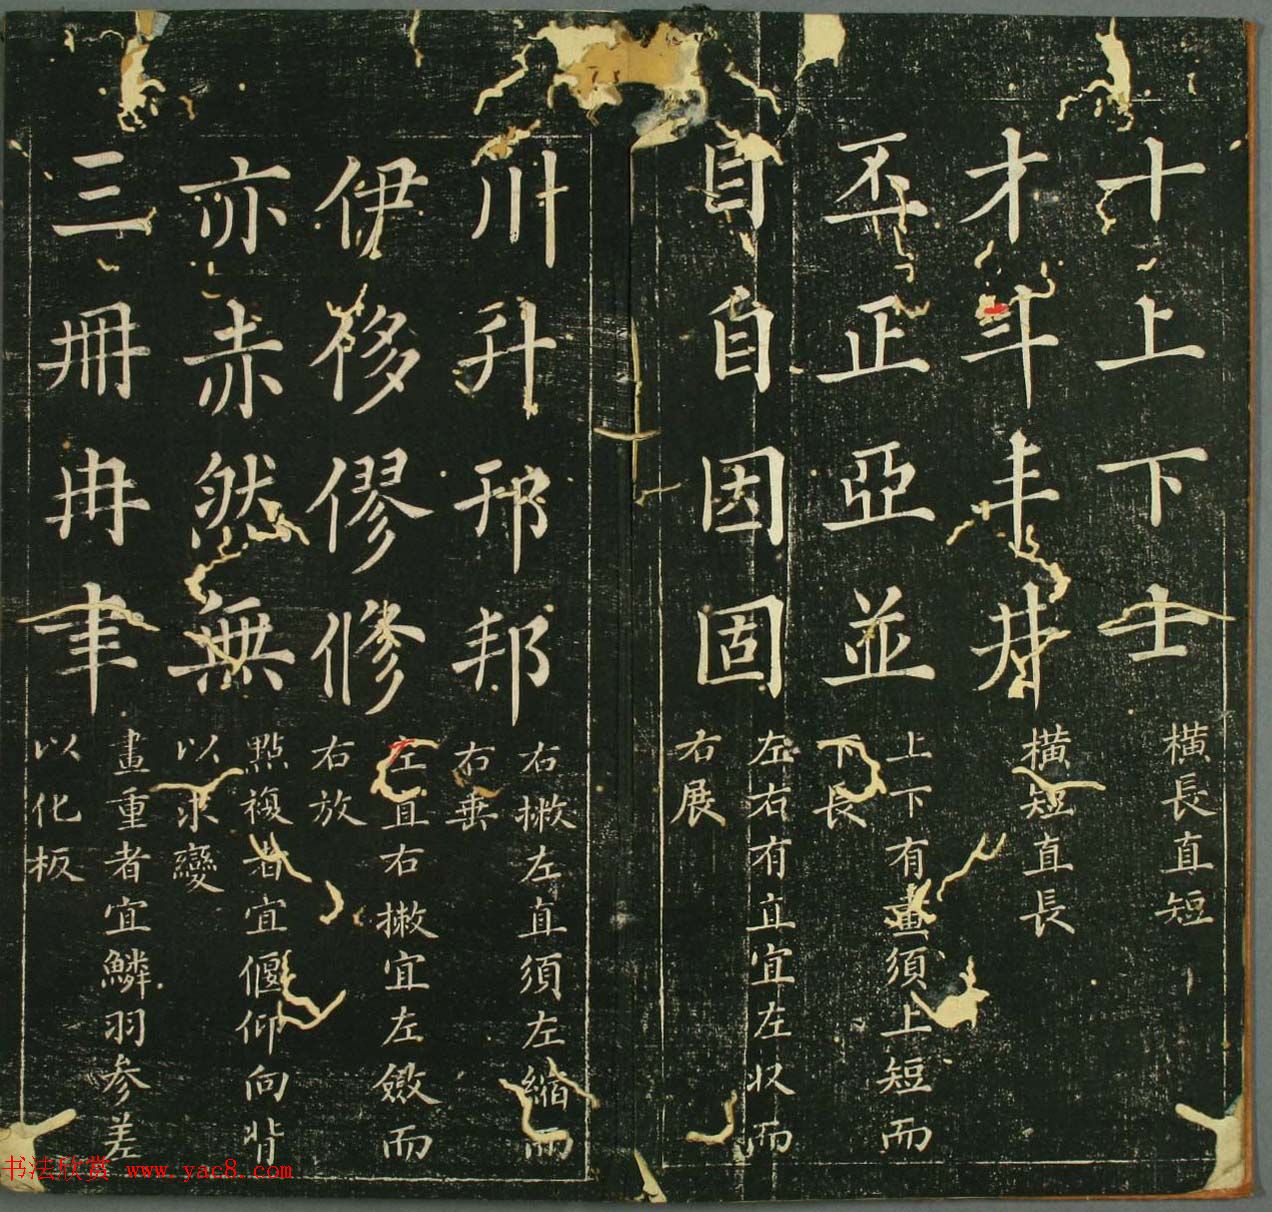 十上下士 橫長直短
才斗丰井 橫短直長
丕正亞並 上下有畫須上短而下長
目自因固 左右有直宜左収而右展
川升邢邦 右撇左直須左縮而右垂
伊侈僇修 左直右撇宜左斂而右放
亦赤然無 點複者宜偃仰向背以求變
三冊冉聿 畫重者宜鱗羽参差以化板
书法欣赏 www.yac8.com